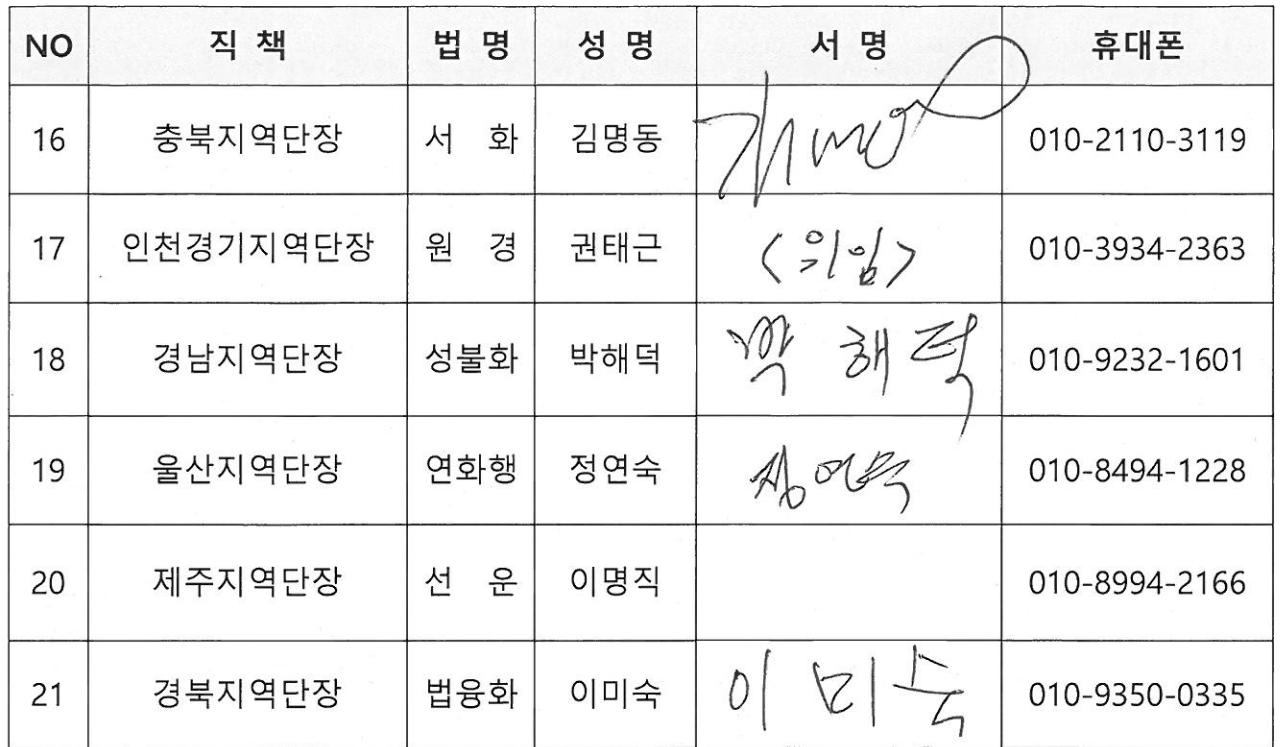 NO 직 책 법 명 성 명 서 명 휴대폰
16 충북지역단장 서 화 김명동 010-2110-3119
17 인천경기지역단장 원 경 권태근 <위임> 010-3934-2363
18 경남지역단장 성불화 박해덕 박해덕 010-9232-1601
19 울산지역단장 연화행 정연숙 정연숙 010-8494-1228
20 제주지역단장 선 운 이명직 010-8994-2166
21 경북지역단장 법융화 이미숙 이미숙 010-9350-0335